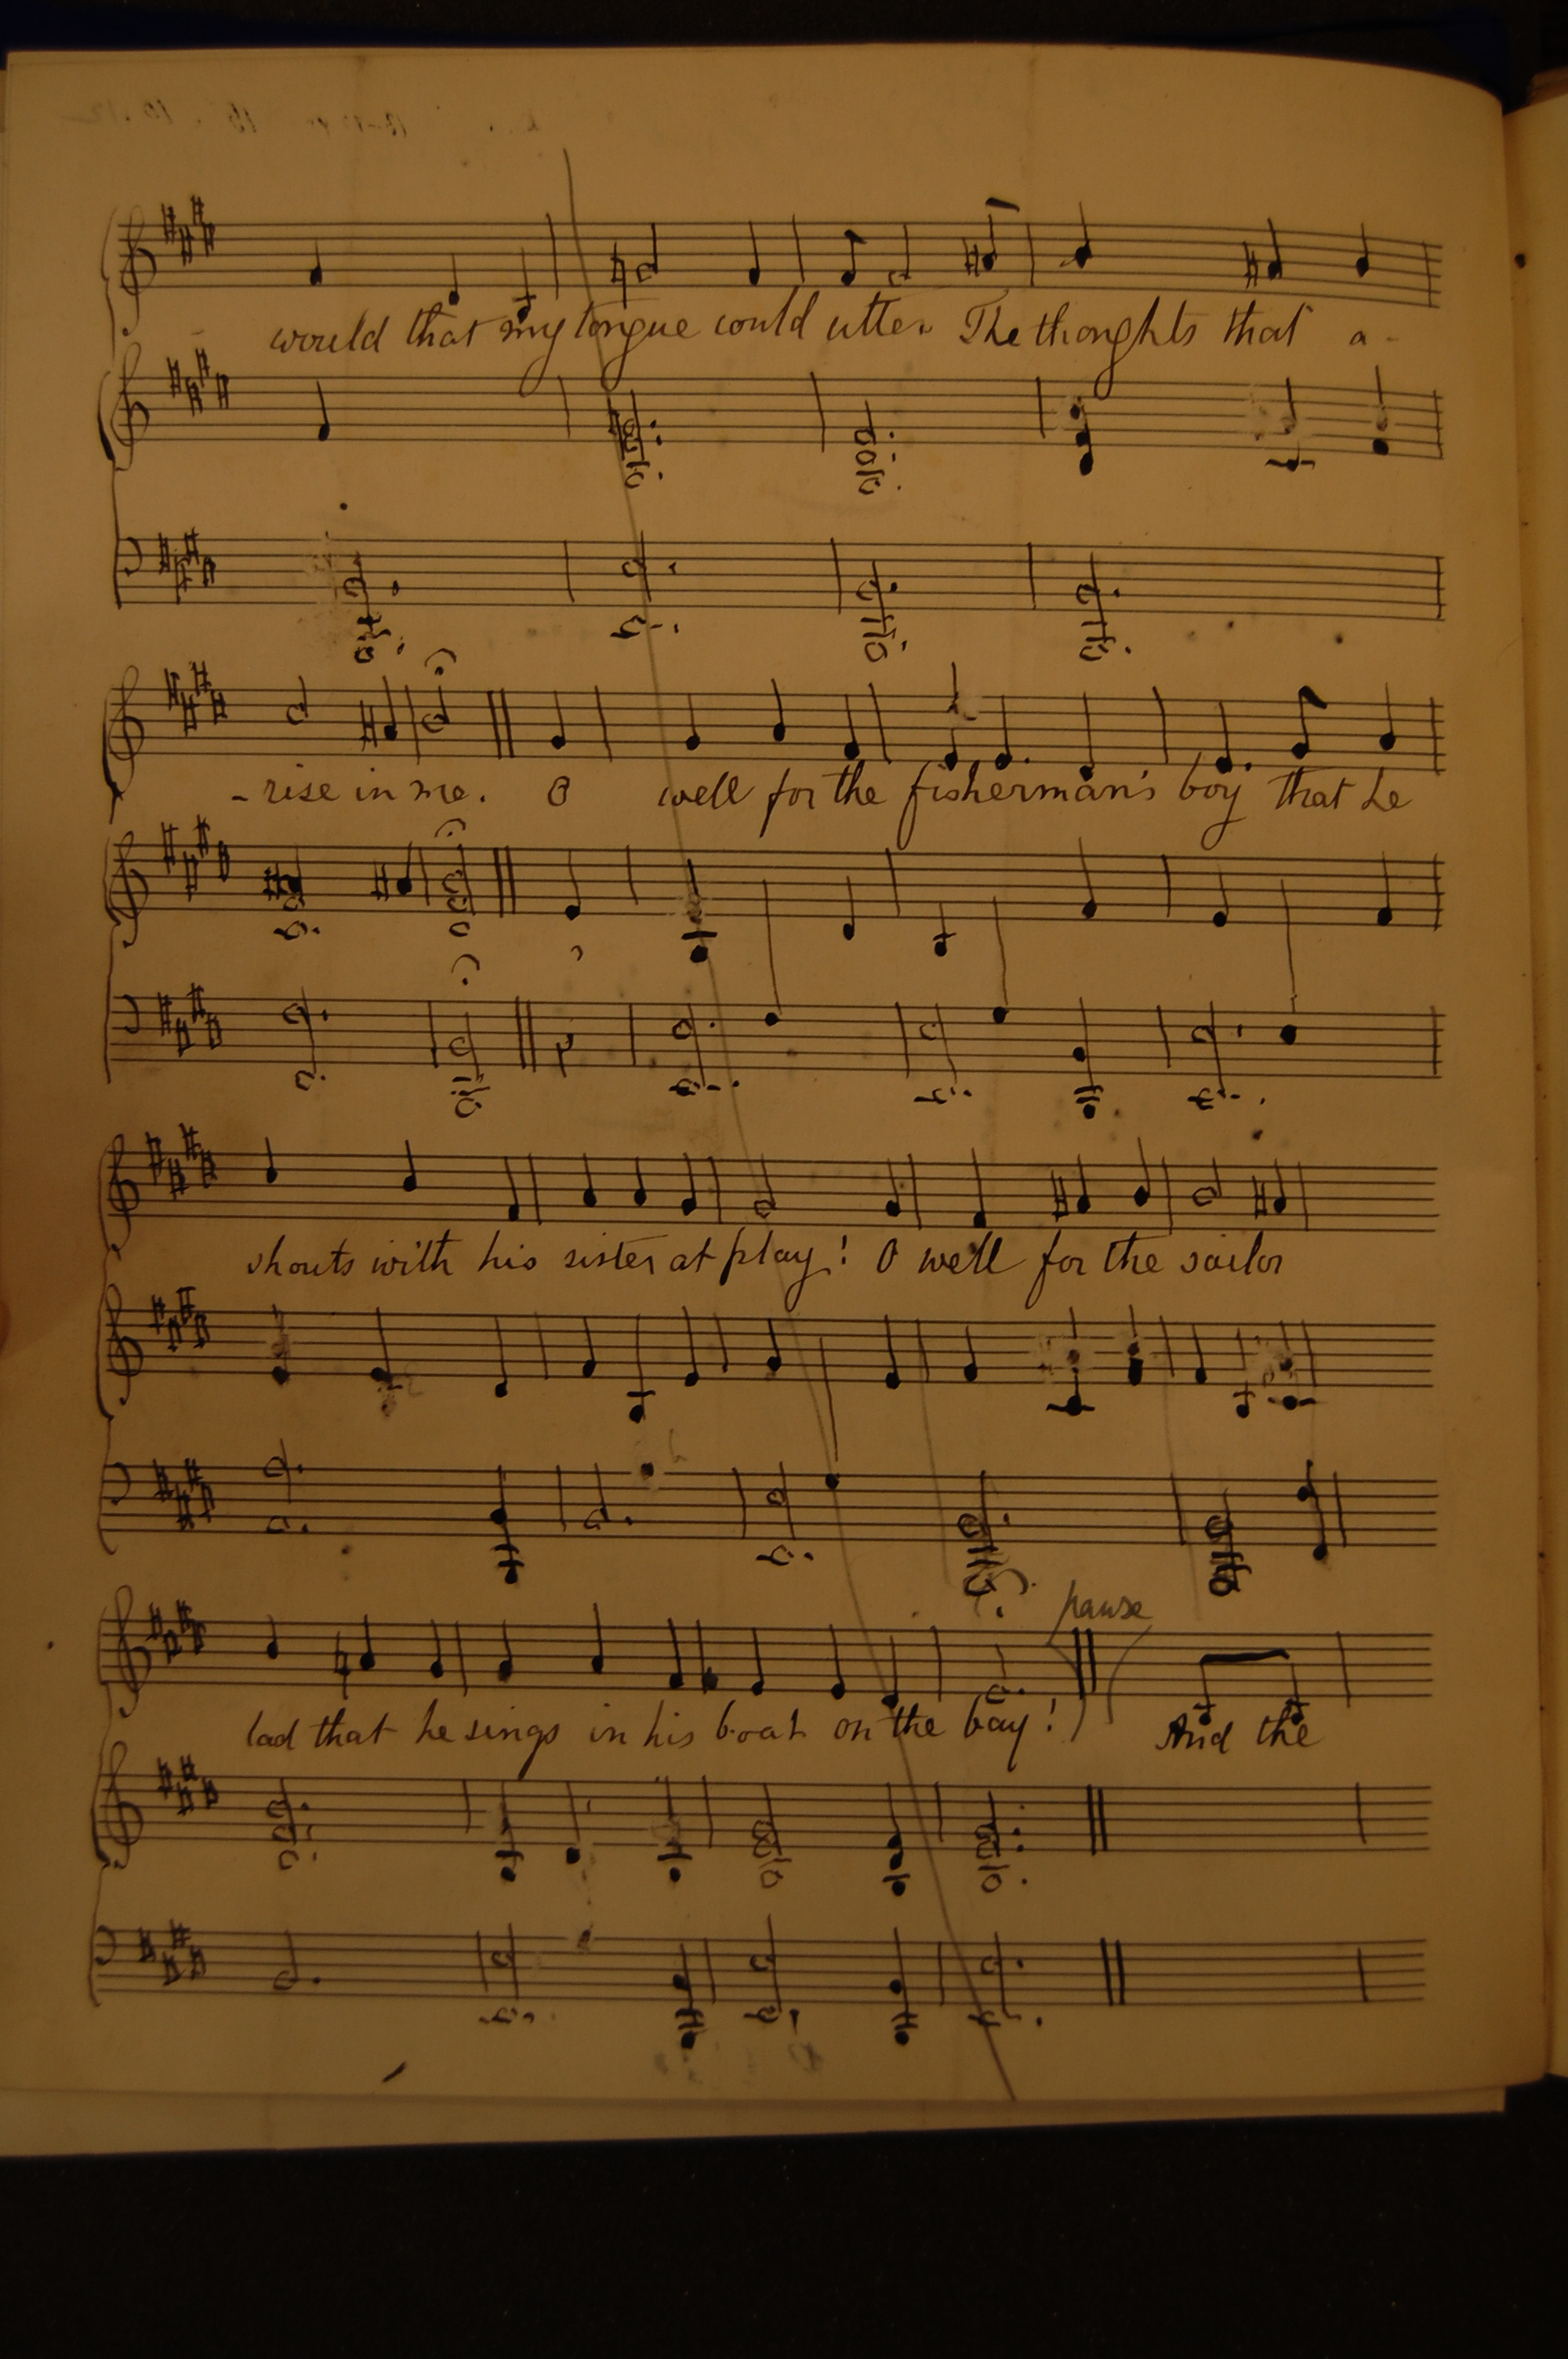 would that my tongue could utter The thoughts that a-
-rise in me. O well for the fisherman's boy that he
shouts with his sister at play! O well for the sailor
pause
lad that he sings in his boat on the bay! And the